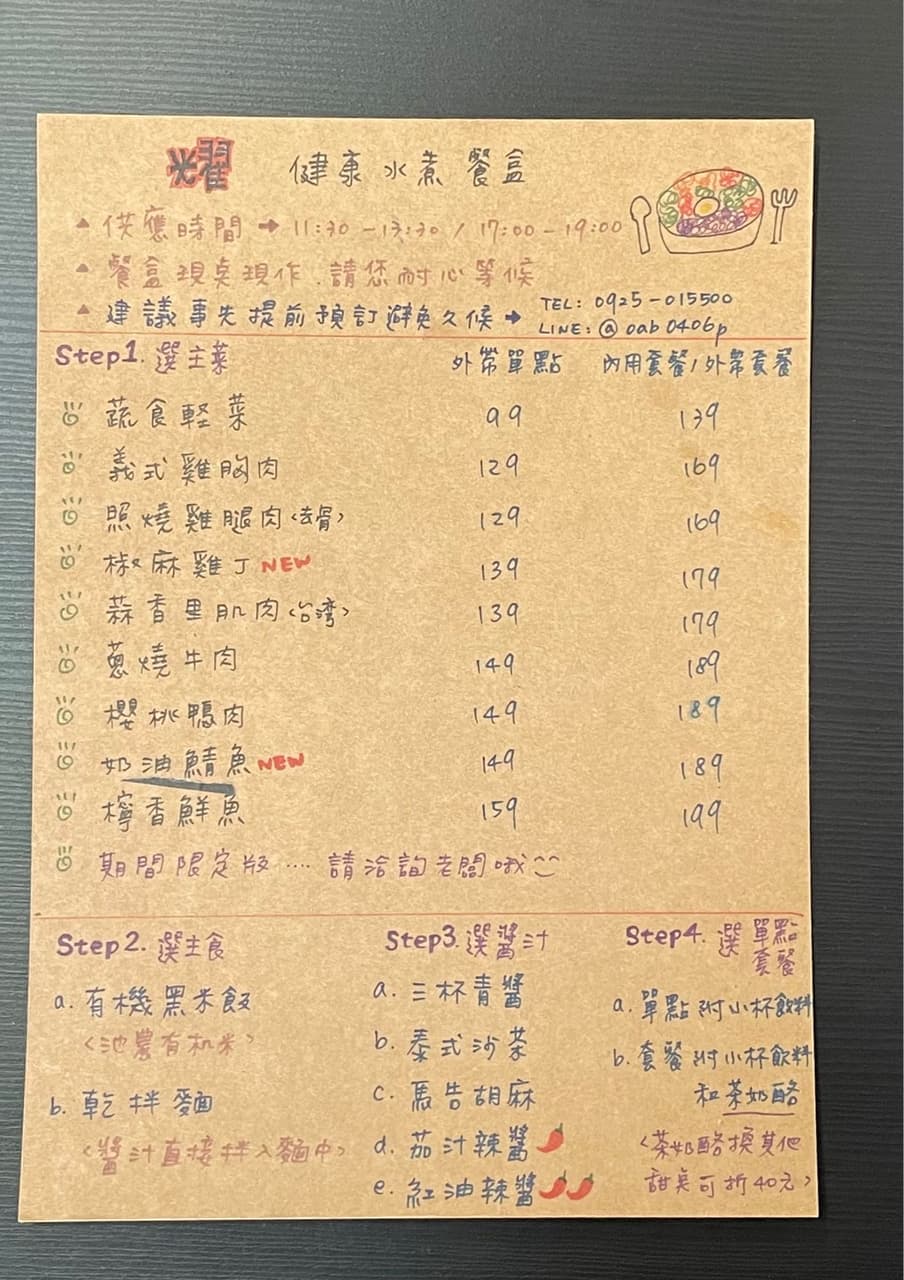 耀 健康水煮餐盒
▲ 供應時間 → 11:30 - 13:30 / 17:00 - 19:00
▲ 餐盒現桌現作 . 請您耐心等候
▲ 建議事先提前預訂避免久候 → TEL: 0925-015500
LINE: @oab0406p
Step1. 選主菜 外帶單點 內用套餐/外帶套餐
蔬食輕菜 99 139
義式雞胸肉 129 169
照燒雞腿肉<去骨> 129 169
椒麻雞丁 NEW 139 179
蒜香里肌肉<台湾> 139 179
蔥燒牛肉 149 189
櫻桃鴨肉 149 189
奶油鯖魚 NEW 149 189
檸香鮮魚 159 199
期間限定版 .... 請洽詢老闆哦^^
Step2. 選主食
a. 有機黑米飯
<池農有机米>
b. 乾拌麵
<醬汁直接拌入麵中>
Step3. 選醬汁
a. 三杯青醬
b. 泰式沙茶
c. 馬告胡麻
d. 茄汁辣醬
e. 紅油辣醬
Step4. 選 單點
套餐
a. 單點附小杯飲料
b. 套餐附小杯飲料
和茶奶酪
<茶奶酪換其他
甜點可折40元>